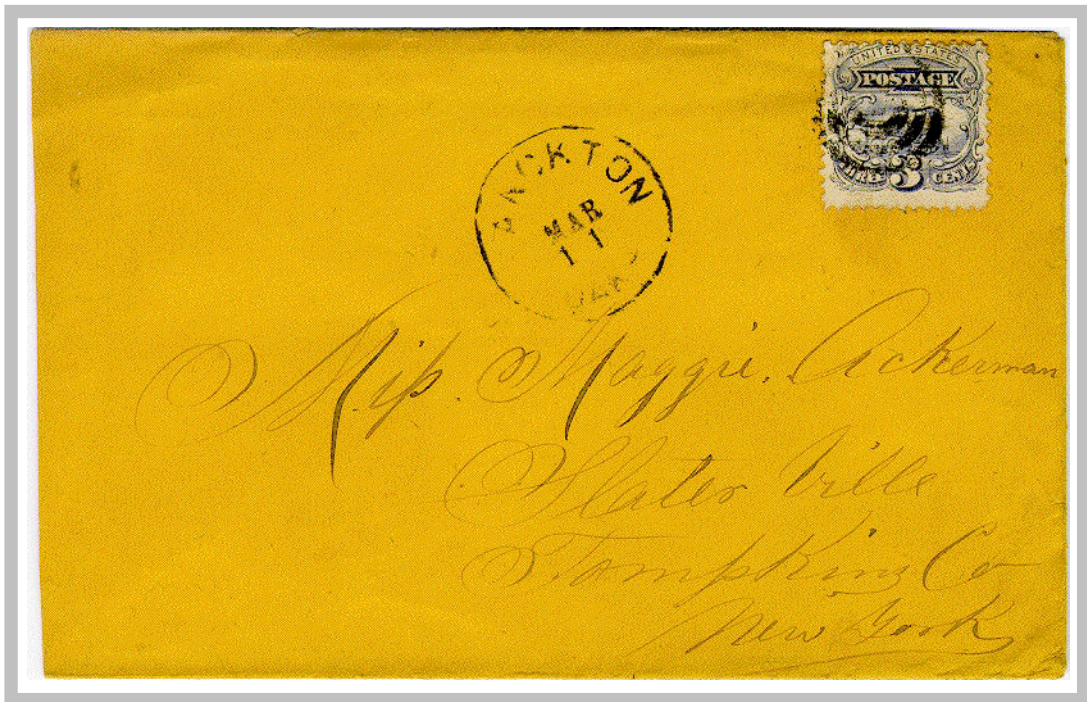 UNITED STATES
POSTAGE
THREE 3 CENTS
MAR
11
Miss. Maggie. Ackerman
Slater Ville
Tompkins Co
New York